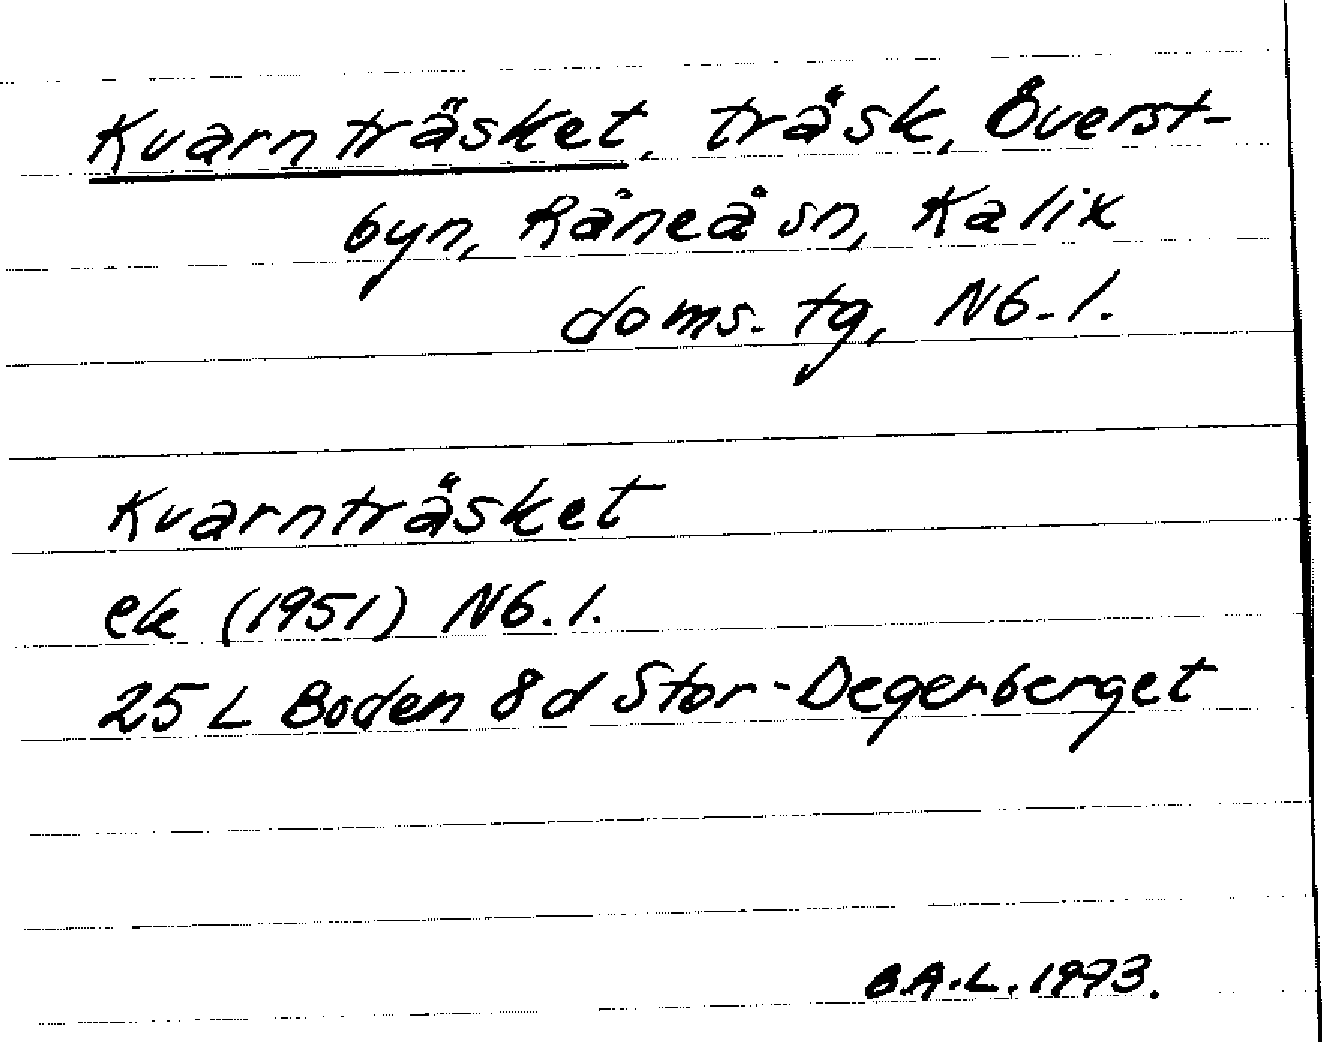 Kvarnträsket, träsk, Överst-
byn, Råneå sn, Kalix
doms. tg, Nb. l.
Kvarnträsket
ek (1951) Nb. l.
25 L Boden 8 d Stor-Degerberget
B.A.L. 1973.